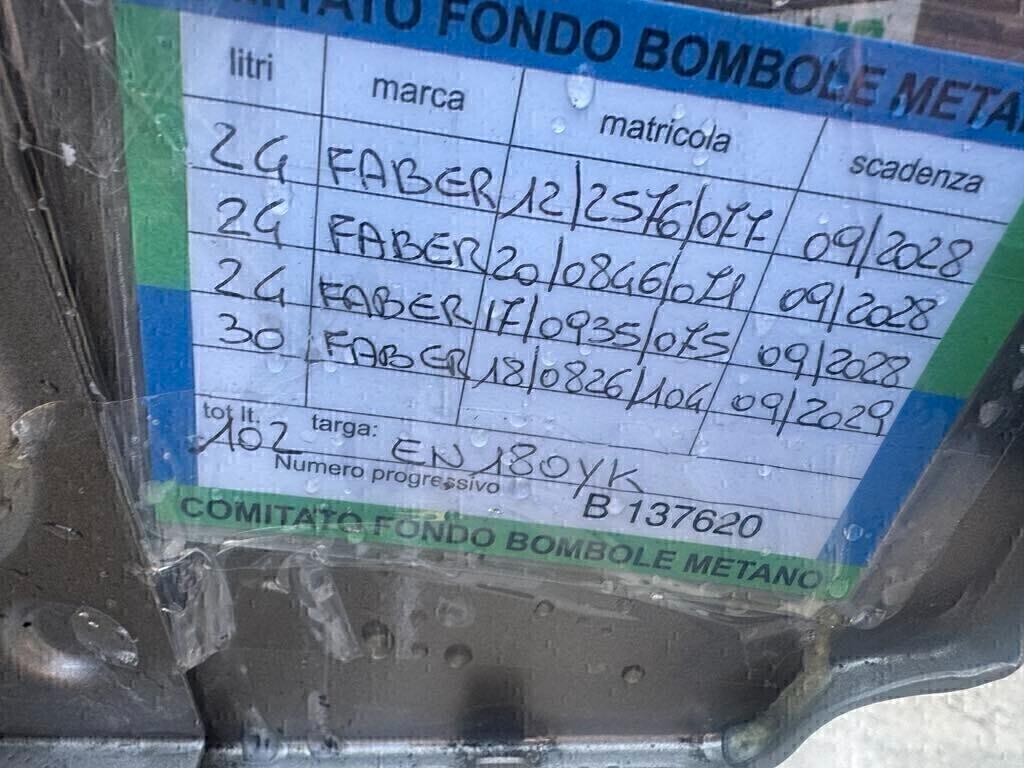 COMITATO FONDO BOMBOLE METANO
litri marca matricola scadenza
24 FABER 12/2576/077 09/2028
24 FABER 20/0846/071 09/2028
24 FABER 17/0935/075 09/2028
30 FABER 18/0826/104 09/2029
tot lt. 102 targa: EN180YK
Numero progressivo B 137620
COMITATO FONDO BOMBOLE METANO